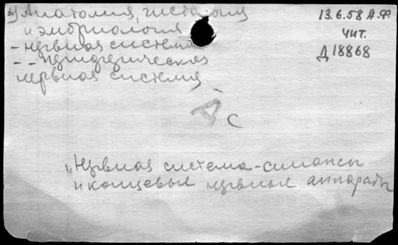 Анатомия, гистология
и эмбриология
- нервная система
-- периферическая
нервная система
13.6.58 А.Ф.
Чит.
Д18868
А
с
"Нервная система-синапсы
и концевые нервные аппараты